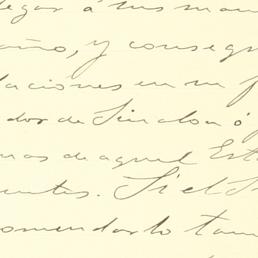 llegar á sus man
año, y conseg
laciones en su f
dor de Sinaloa ó
nas de aquel Est
entes. Si el S
comendarlo tam